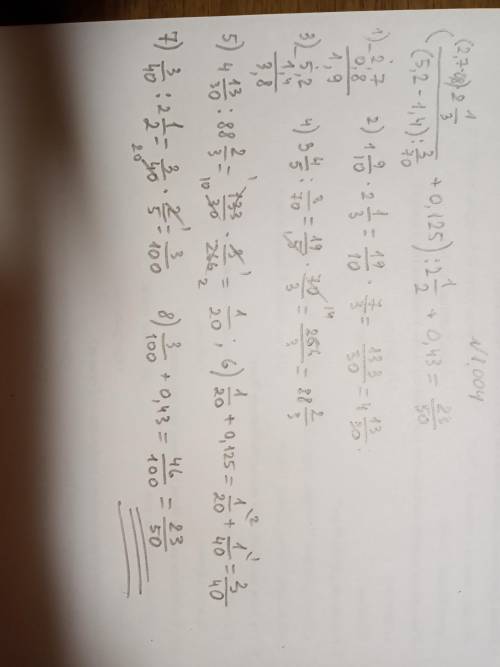 N 1,004
((2,7-0,8)·2 1/3 / (5,2-1,4):3/70 + 0,125) : 2 1/2 + 0,43 = 23/50
1) -2,7
0,8
1,9
2) 1 9/10 · 2 1/3 = 19/10 · 7/3 = 133/30 = 4 13/30.
3) -5,2
1,4
3,8
4) 3 4/5 : 3/70 = 19/5 · 70/3 = 266/3 = 88 2/3
5) 4 13/30 : 88 2/3 = 133/30 · 3/266 = 1/20; 6) 1/20 + 0,125 = 1/20 + 1/40 = 3/40
7) 3/40 : 2 1/2 = 3/40 · 2/5 = 3/100 8) 3/100 + 0,43 = 46/100 = 23/50